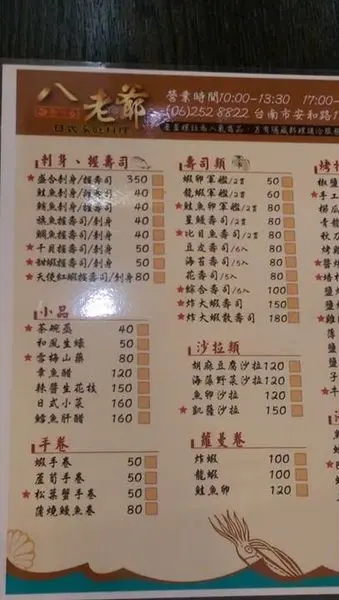 八老爺
日式
營業時間10:00-13:30 17:00-
(06)252 8822 台南市安和路1
刺身、握壽司
★盛合刺身/握壽司 350
鮭魚刺身/握壽司 40
鮪魚刺身/握壽司 40
旗魚握壽司/刺身 40
鯛魚握壽司/刺身 40
★干貝握壽司/刺身 50
★甜蝦握壽司/刺身 50
★天使紅蝦握壽司/刺身 80
小品
★茶碗蒸 40
和風生蠔 50
★雪梅山藥 80
章魚醋 120
辣醬生花枝 150
日式小菜 160
鱈魚肝醋 160
手卷
蝦手卷 50
蘆筍手卷 50
★松葉蟹手卷 50
蒲燒鰻魚卷 80
壽司類
蝦卵軍艦/2貫 50
龍蝦軍艦/2貫 60
★鮭魚卵軍艦/2貫 80
星鰻壽司/2貫 80
★比目魚壽司/2貫 80
豆皮壽司/6入 80
海苔壽司/5入 80
花壽司/5入 80
★綜合壽司/6入 100
★炸大蝦壽司 150
★炸大蝦散壽司 180
沙拉類
胡麻豆腐沙拉 120
海藻野菜沙拉 120
魚卵沙拉 120
★凱薩沙拉 150
蘿曼卷
炸蝦 100
龍蝦 100
鮭魚卵 120